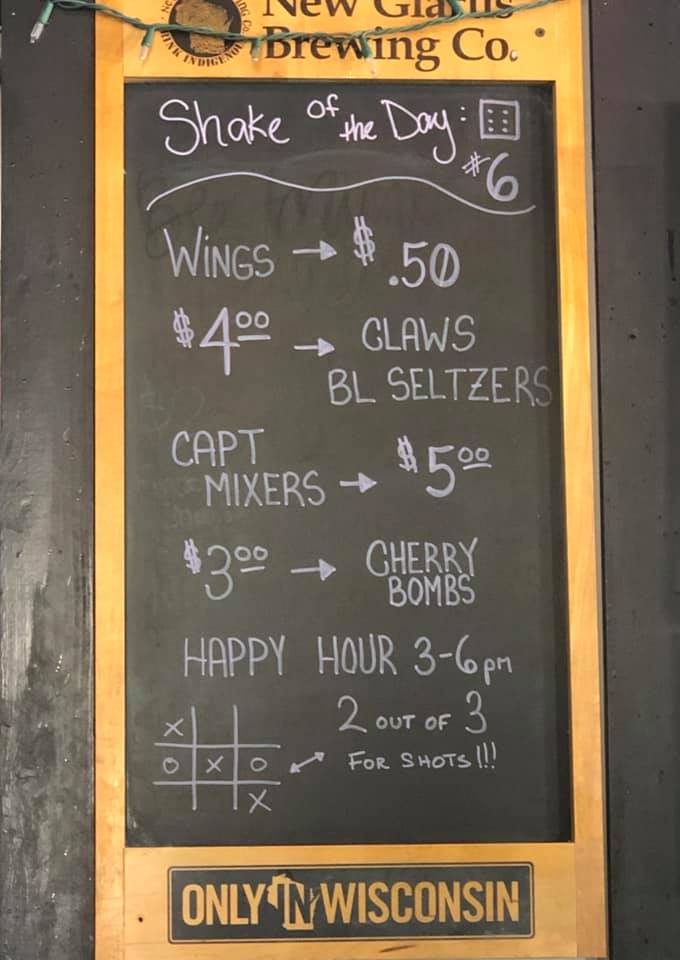 New Glarus
Brewing Co.
Shake of the Day:
#6
WiNGS → $ .50
$4.00 → CLAWS
BL SELTZERS
CAPT
MIXERS → $5.00
$3.00 → CHERRY
BOMBS
HAPPY HOUR 3-6pm
2 OUT OF 3
FOR SHOTS!!!
X
O X O
X
ONLY IN WISCONSIN